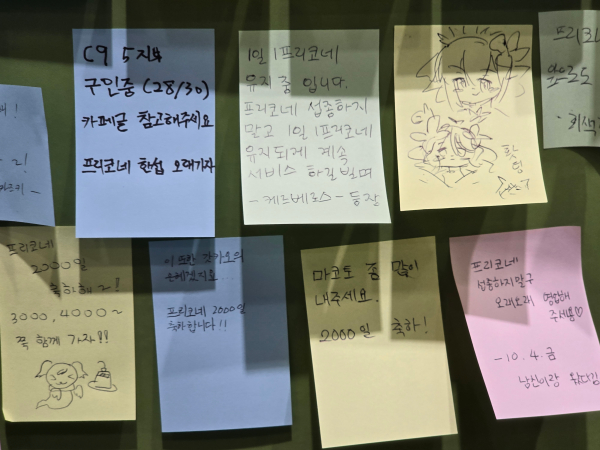 C9 5지부
구인중 (28/30)
카페글 참고해주세요
프리코네 한섭 오래가자
1일 1프리코네
유지중 입니다.
프리코네 섭종하지
말고 1일 1프리코네
유지되게 계속
서비스 하길빌며
-케르베로스- 등장
프리코
-
프리코네
2000일
축하해~!
3000, 4000~
꼭 함께 가자!!
이 또한 갓카오의
은혜겠지요
프리코네 2000일
축하합니다!!
마코토 좀 많이
내주세요.
2000일 축하!
프리코네
섭종하지말구
오래오래 영업해
주세용♡
-10.4.금